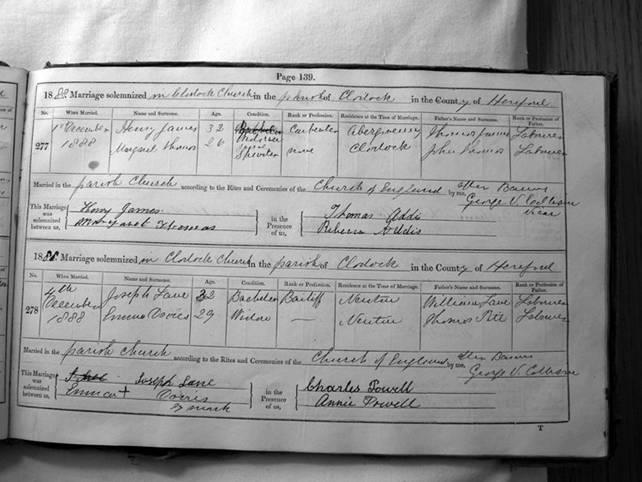 Page 139.
1888. Marriage solemnized in Clodock Church in the parish of Clodock in the County of Hereford
No. When Married. Name and Surname. Age. Condition. Rank or Profession. Residence at the Time of Marriage. Father's Name and Surname. Rank or Profession of Father.
277 1st December 1888 Henry James 32 Widower Carpenter Abergavenny Thomas James Labourer
Margaret Thomas 26 Spinster none Clodock John Thomas Labourer
Married in the parish Church according to the Rites and Ceremonies of the Church of England after Banns by me, George V. Collison Vicar
This Marriage was solemnized between us, Henry James in the Presence of us, Thomas Addis
Margaret Thomas Rebecca Addis
1888. Marriage solemnized in Clodock Church in the parish of Clodock in the County of Hereford
No. When Married. Name and Surname. Age. Condition. Rank or Profession. Residence at the Time of Marriage. Father's Name and Surname. Rank or Profession of Father.
278 4th December 1888 Joseph Lane 32 Bachelor Bailiff Newton William Lane Labourer
Emma 29 Widow — Newton Thomas Labourer
Married in the parish church according to the Rites and Ceremonies of the Church of England after Banns by me, George V. Collison
This Marriage was solemnized between us, Joseph Lane in the Presence of us, Charles Powell
Emma + mark Annie Powell
T